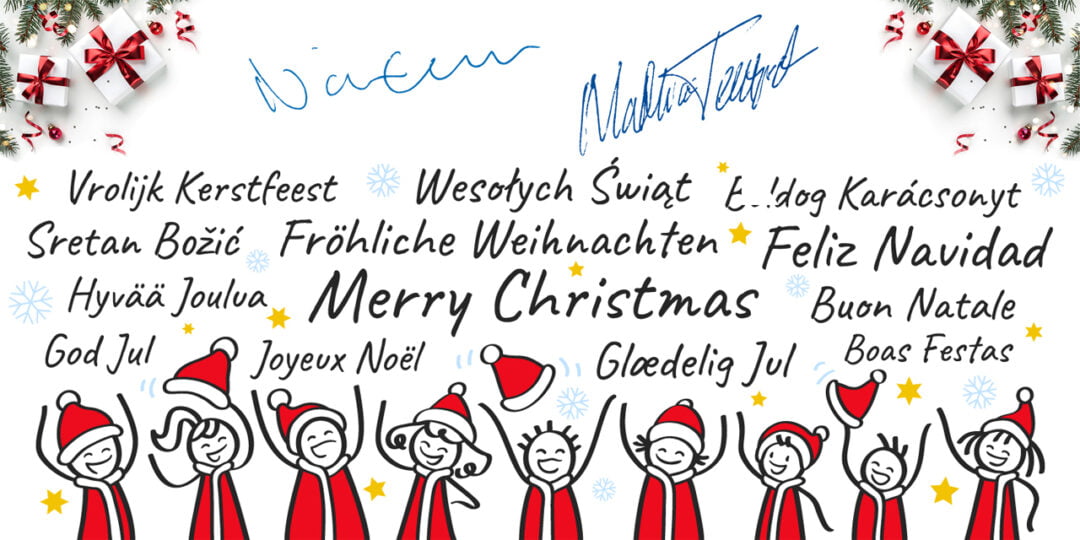 Vrolijk Kerstfeest Wesołych Świąt Karácsonyt
Sretan Božić Fröhliche Weihnachten Feliz Navidad
Hyvää Joulua Merry Christmas Buon Natale
God Jul Joyeux Noël Glædelig Jul Boas Festas